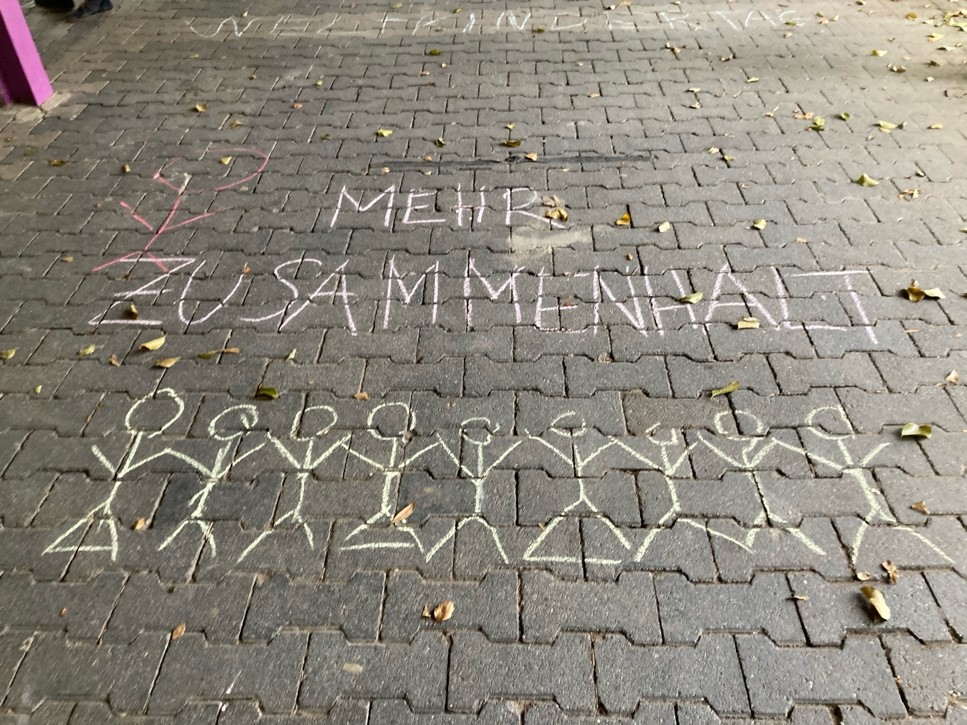 WELTKINDERTAG
MEHR
ZUSAMMENHALT